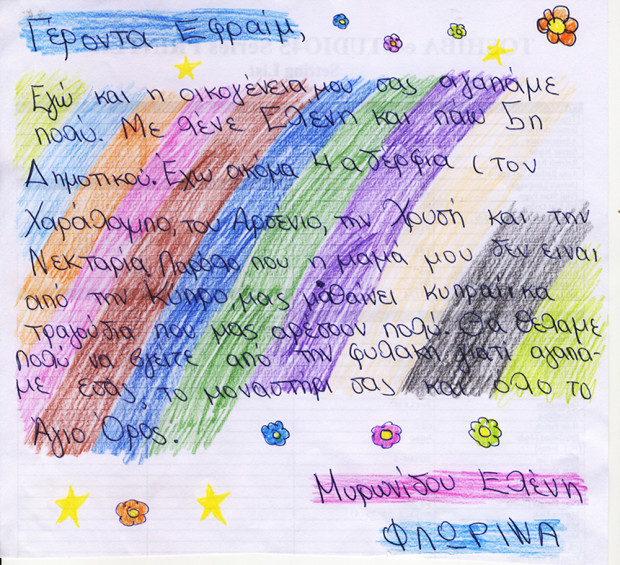 Γέροντα Εφραίμ,
Εγώ και η οικογένεια μου σας αγαπάμε
πολύ. Με λένε Ελένη και πάω 5η
Δημοτικού. Έχω ακόμα 4 αδέρφια (τον
Χαράλαμπο, τον Αρσένιο, την Χρυσή και την
Νεκταρία. Παρόλο που η μαμά μου δεν είναι
από την Κύπρο μας μαθαίνει κυπραίικα
τραγούδια που μας αρέσουν πολύ. Θα θέλαμε
πολύ να βγείτε από την φυλακή γιατί αγαπά-
με εσάς το μοναστήρι σας και όλο το
Άγιο Όρος.
Μυρωνίδου Ελένη
ΦΛΩΡΙΝΑ